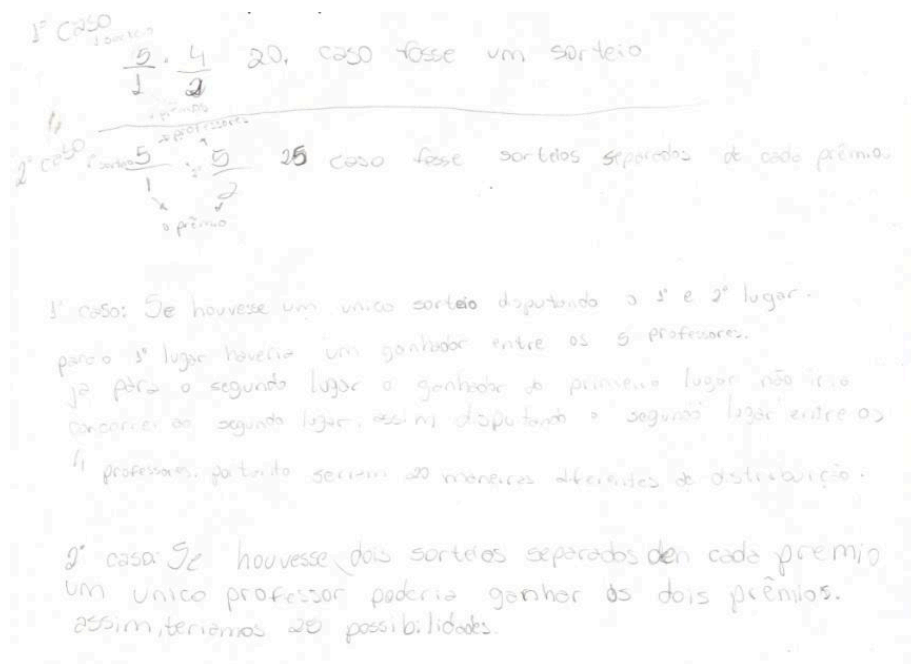 1º Caso
1 sorteio
5/1 . 4/2 20, caso fosse um sorteio
prêmios
professores
2º caso 5/1 . 5/2 25 caso fosse sorteios separados de cada prêmio
o prêmio
1º caso: Se houvesse um unico sorteio disputando o 1º e 2º lugar.
para o 1º lugar haveria um ganhador entre os 5 professores.
já para o segundo lugar o ganhador do primeiro lugar não iria
concorrer ao segundo lugar, assim disputando o segundo lugar entre os
4 professores. portanto seriam 20 maneiras diferentes de distribuição.
2º caso: Se houvesse dois sorteios separados den cada premio
um unico professor poderia ganhar os dois prêmios.
assim, teriamos 25 possibilidades.